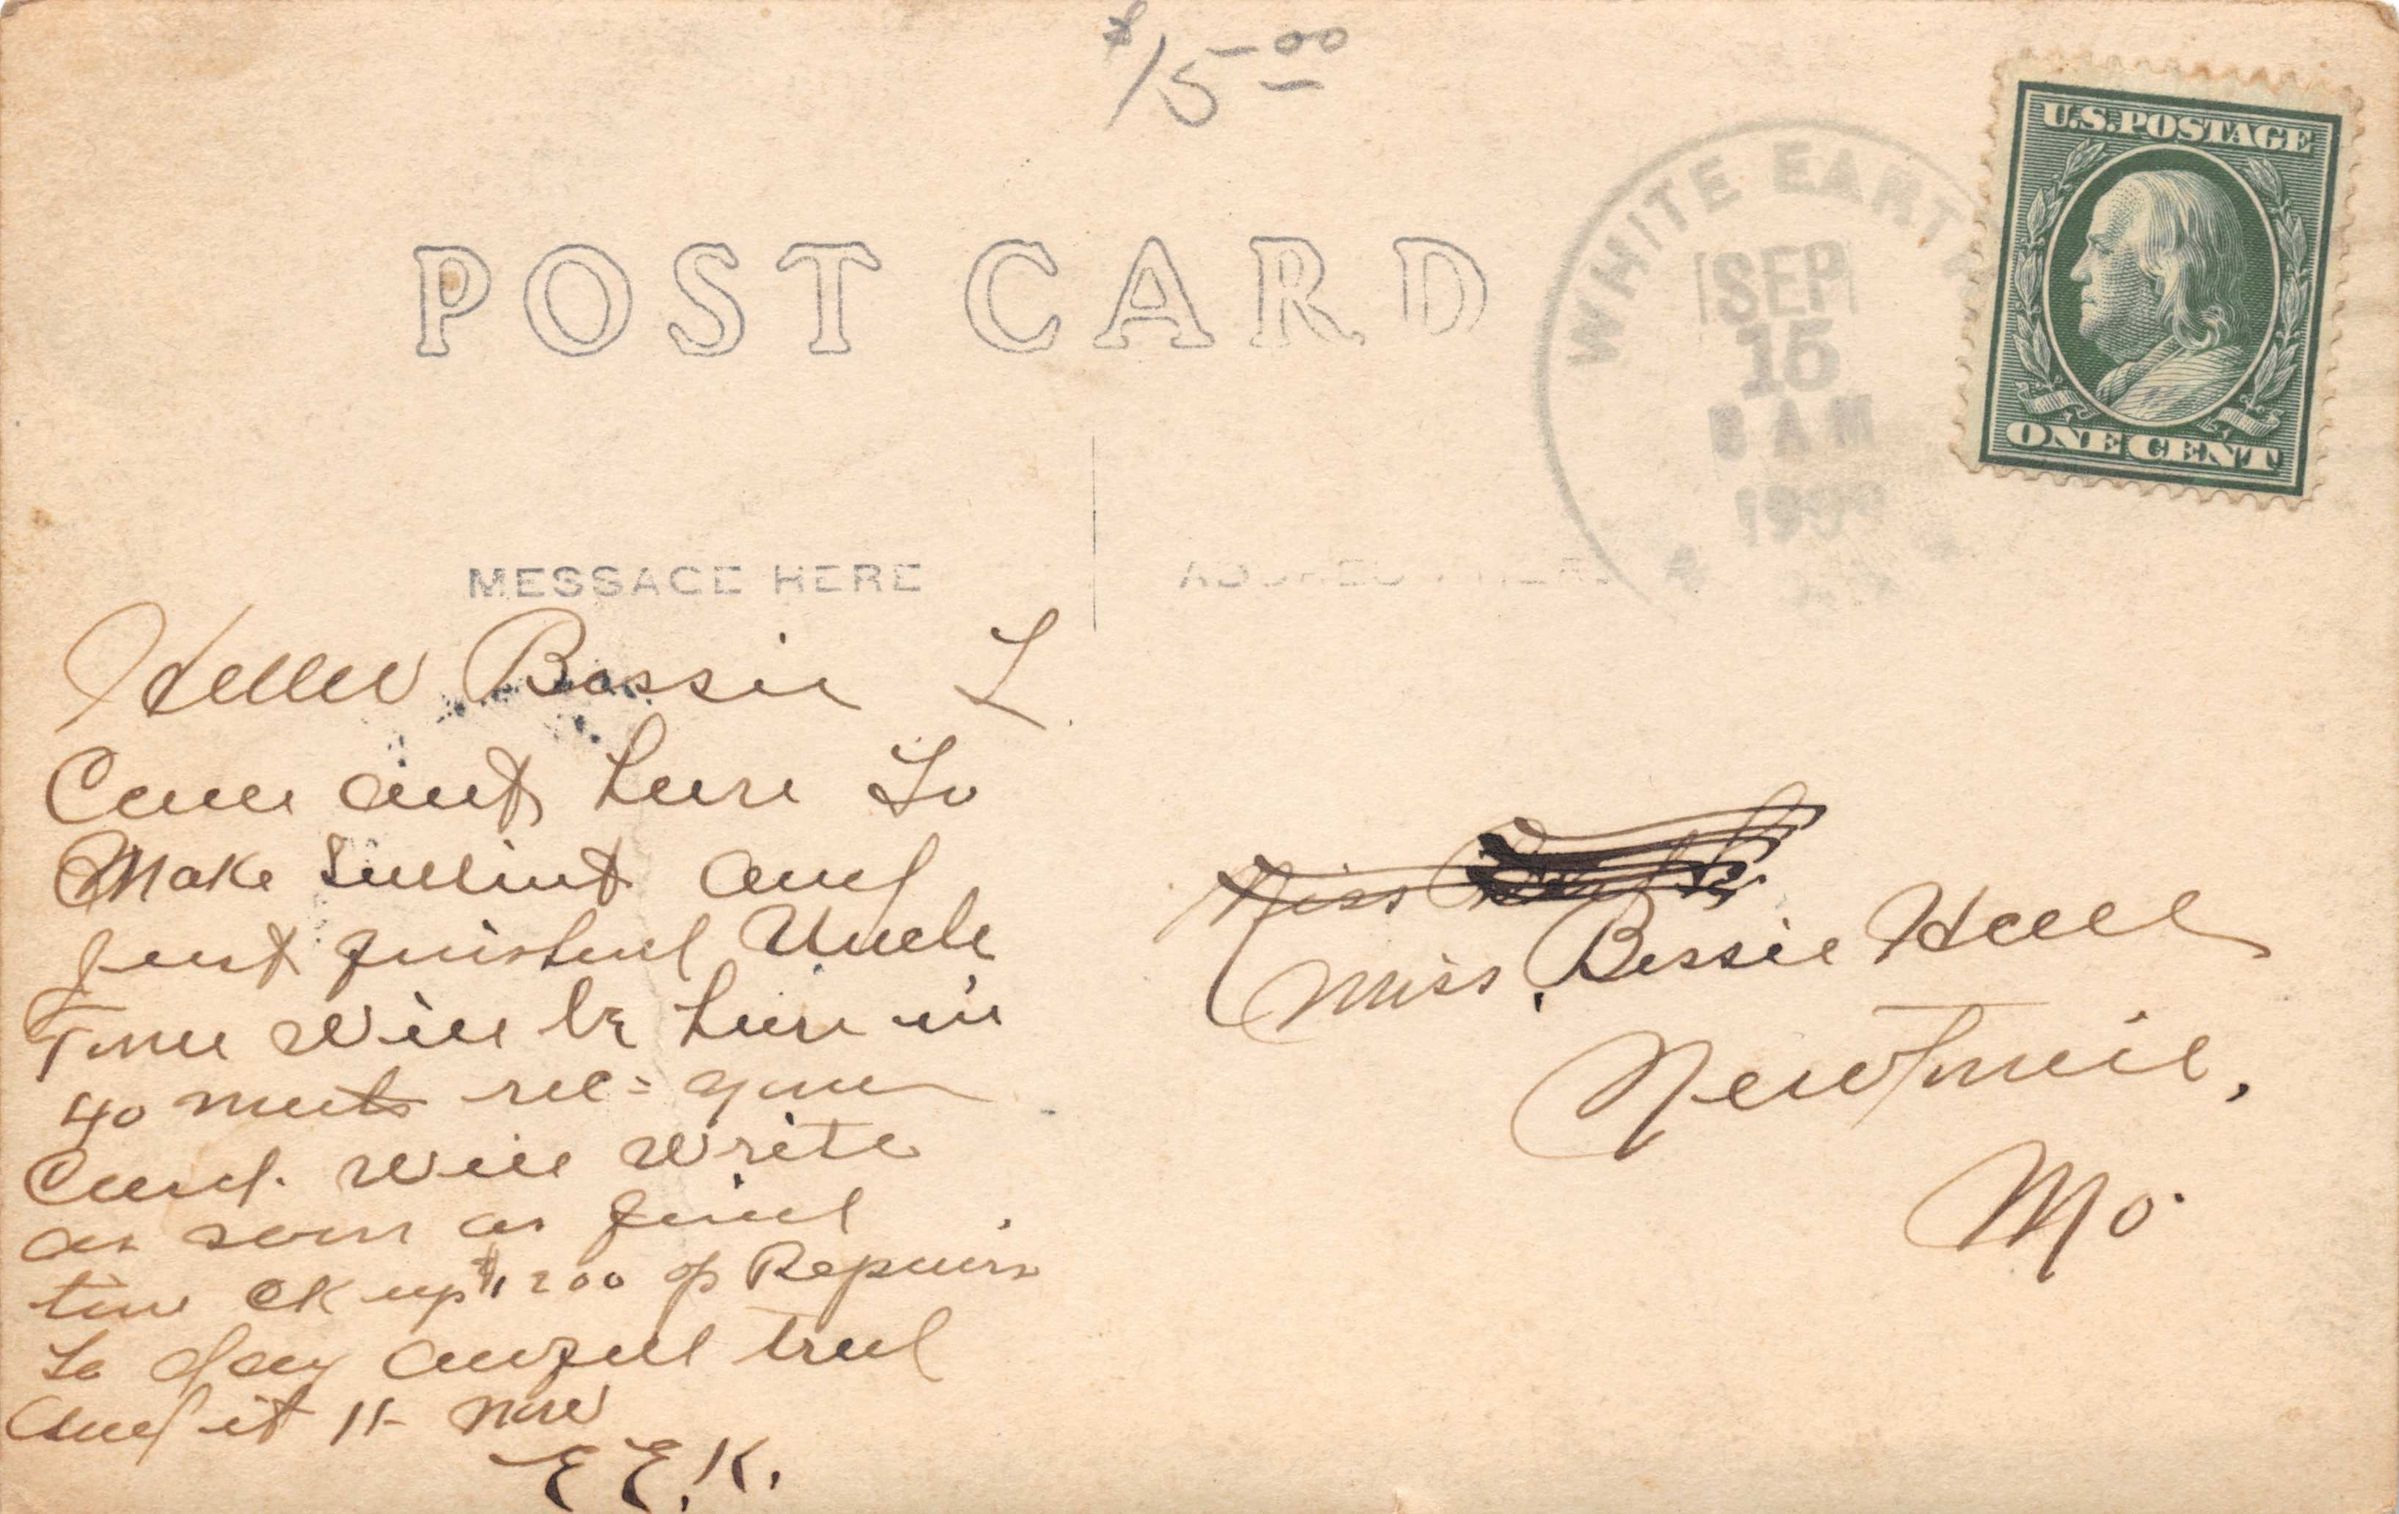 $15.00
U.S. POSTAGE
ONE CENT
WHITE EARTH
SEP
15
8 AM
POST CARD
MESSAGE HERE
ADDRESS HERE
Hello Bessie I
Came out here to
Make and
just finished Uncle
Tom Will be here in
40 rec- your
Card. Will Write
as soon as find
time OK up $1200 of Repairs
to day awful tired
and it 11- now
E.E.K.
Miss
Miss Bessie Hall
Mo